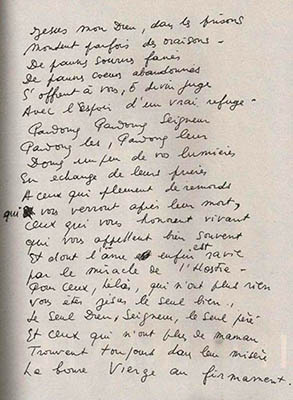 Jesus mon Dieu, dans les prisons
Montent parfois des oraisons -
De pauvres sourires fanés
De pauvres coeurs abandonnés
S'offrent à vous, ô divin juge
Avec l'Espoir d'un vrai refuge -
Pardong Pardong Seigneur
Pardong les, Pardong leur
Dong un peu de vos lumières
En échange de leurs prières
A ceux qui pleurent de remords
qui vous verront après leur mort,
Ceux qui vous honorent vivant
qui vous appellent bien souvent
Et dont l'âme est enfin ravie
par le miracle de l'Hostie -
Pour ceux, hélas, qui n'ont plus rien
Vous êtes Jesus le Seul bien,
Le Seul Dieu, Seigneur, le seul père
Et Ceux qui n'ont plus de maman
Trouvent toujours dans leur misère
La bonne Vierge au firmament.